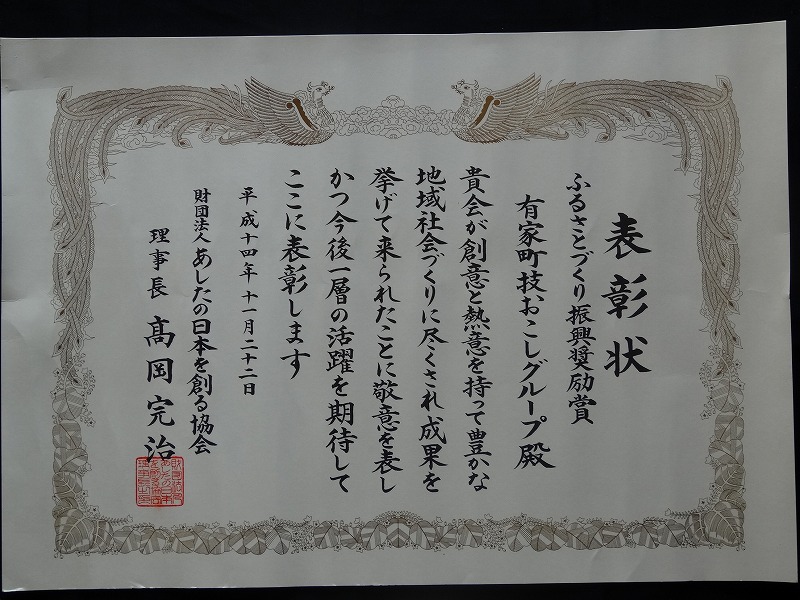 表彰状
ふるさとづくり振興奨励賞
有家町技おこしグループ殿
貴会が創意と熱意を持って豊かな
地域社会づくりに尽くされ成果を
挙げて来られたことに敬意を表し
かつ今後一層の活躍を期待して
ここに表彰します
平成十四年十一月二十二日
財団法人あしたの日本を創る協会
理事長 髙岡完治